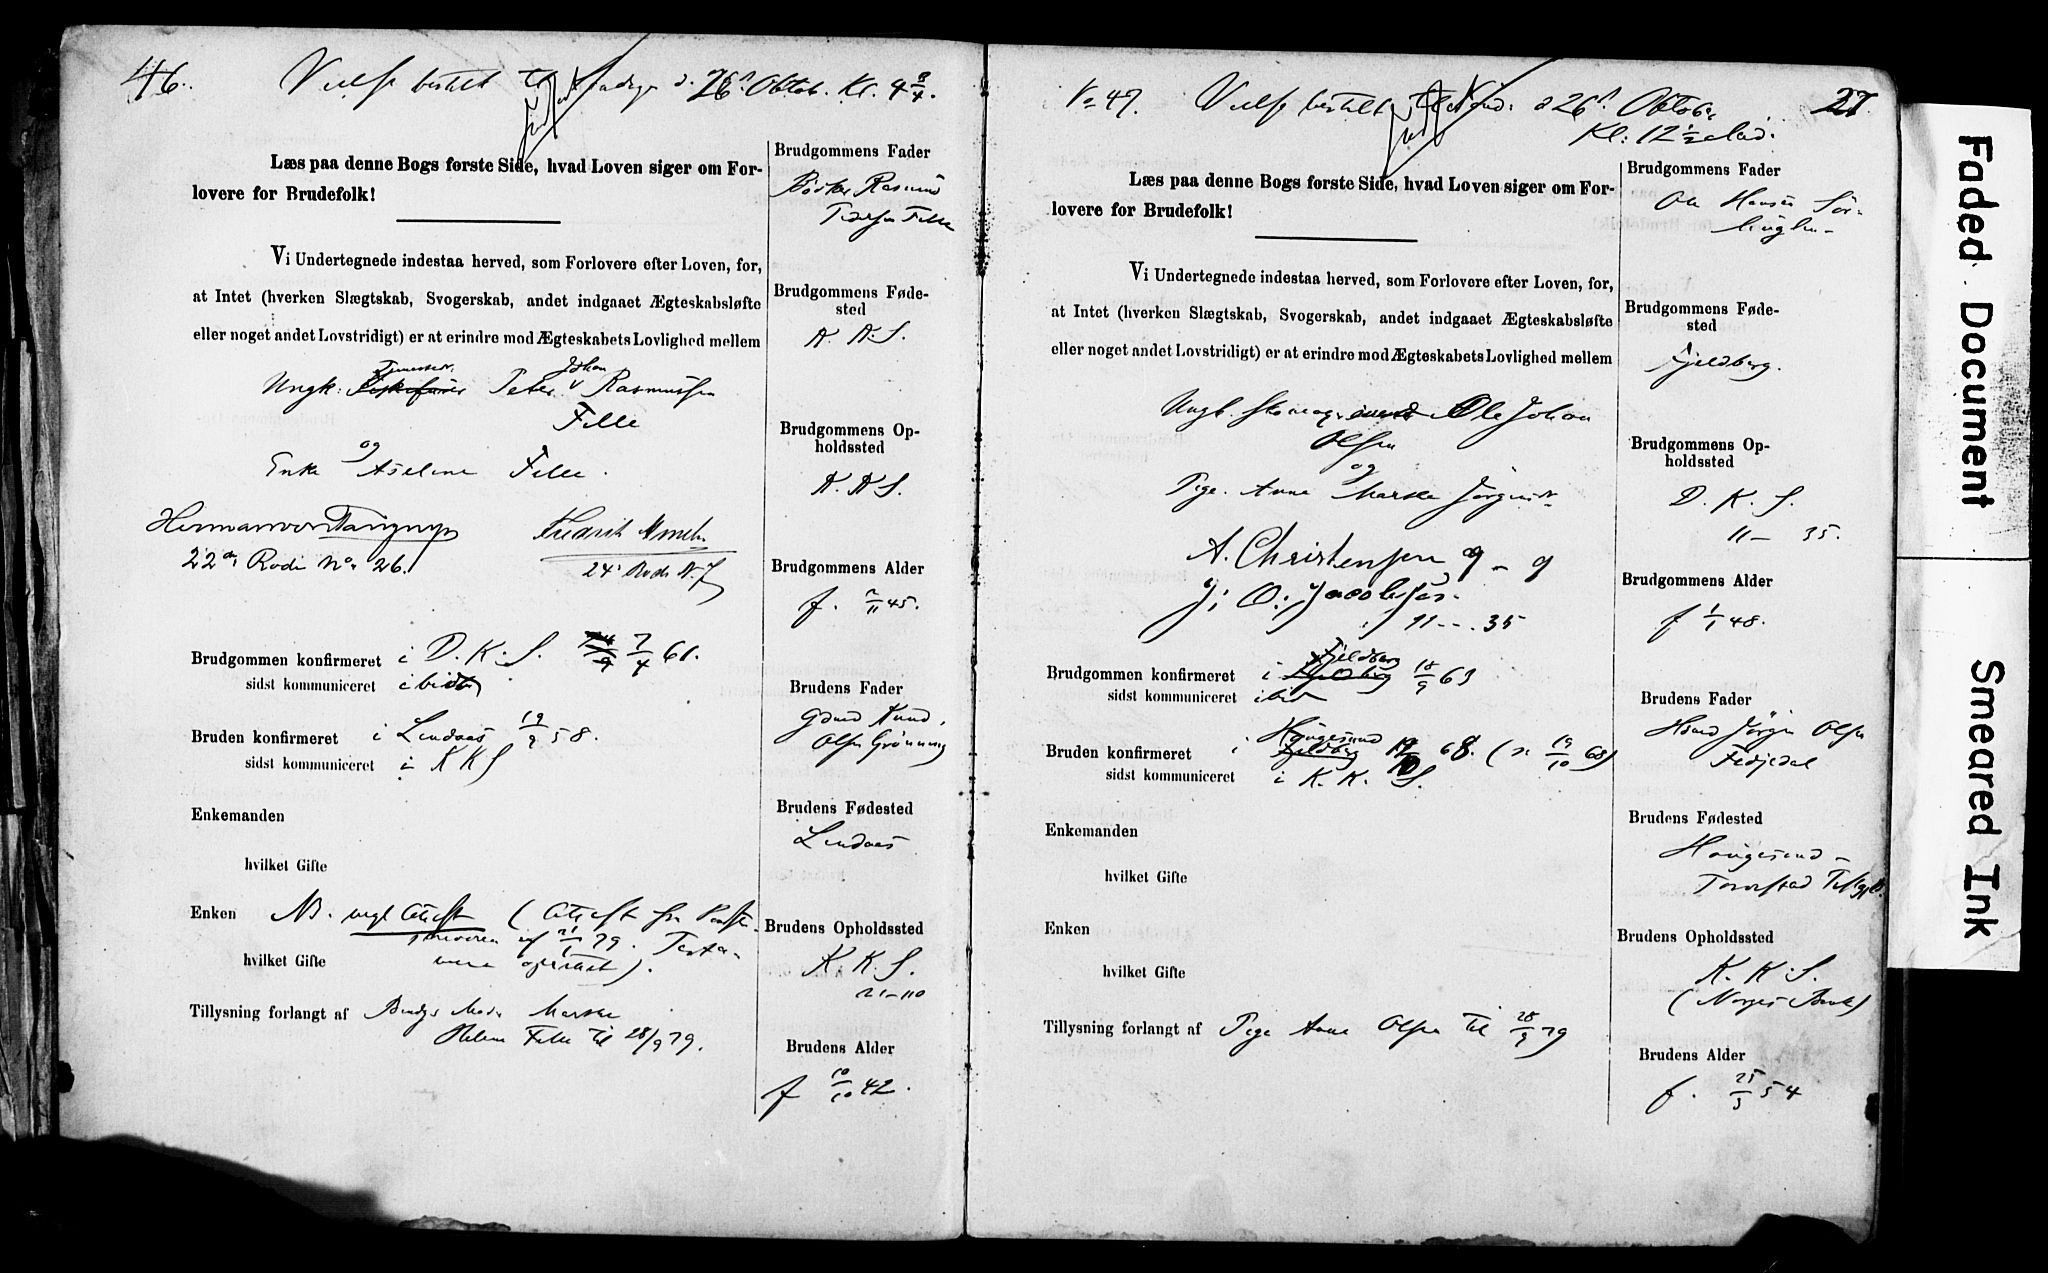 46. Vielse bestilt til Søndag d. 26de Oktob. Kl. 4 3/4.
Læs paa denne Bogs første Side, hvad Loven siger om For-
lovere for Brudefolk!
Vi Undertegnede indestaa herved, som Forlovere efter Loven, for,
at Intet (hverken Slægtskab, Svogerskab, andet indgaaet Ægteskabsløfte
eller noget andet Lovstridigt) er at erindre mod Ægteskabets Lovlighed mellem
Ungk. Peter Johan Rasmussen
Fille
og
Enke Aselene Fille.
Herman von Tangen
22de Rode No 26.
Fredrik
24' Rode N. 7
Brudgommen konfirmeret i D. K. S. 7/4 61.
sidst kommuniceret i ibid
Bruden konfirmeret i Lindaas 19/9 58.
sidst kommuniceret i K K S
Enkemanden
hvilket Gifte
Enken NB. vegl Attest (Attest fra
af 21/1 79.
hvilket Gifte
Tillysning forlangt af Brudgs Moder Marthe
Helene Fille til 28/9 79.
Brudgommens Fader
Rasmus
Fille
Brudgommens Føde-
sted
K. K. S.
Brudgommens Op-
holdssted
K. K S.
Brudgommens Alder
f. 2/11 45.
Brudens Fader
Gmd Knud
Olsen Grønning
Brudens Fødested
Lindaas
Brudens Opholdssted
K. K. S.
21-110
Brudens Alder
f 10/10 42.
No 47. Vielse bestilt til Sønd. d 26de Oktober 27.
Kl: 12 1/2
Læs paa denne Bogs første Side, hvad Loven siger om For-
lovere for Brudefolk!
Vi Undertegnede indestaa herved, som Forlovere efter Loven, for,
at Intet (hverken Slægtskab, Svogerskab, andet indgaaet Ægteskabsløfte
eller noget andet Lovstridigt) er at erindre mod Ægteskabets Lovlighed mellem
Ungk. Skomagersvend Ole Johan
Olsen
og
Pige Anna Marthe Jørgine
A. Christensen 9 - 9
J: O: Jacobsen.
11 - - 35
Brudgommen konfirmeret i Fjeldberg 18/9 63
sidst kommuniceret ibid
Bruden konfirmeret i Haugesund 68. (n 19/10 68)
sidst kommuniceret i K. K. S.
Enkemanden
hvilket Gifte
Enken
hvilket Gifte
Tillysning forlangt af Pige Anna Olsen til 28/9 79
Brudgommens Fader
Ole Hansen
Brudgommens Føde-
sted
Fjeldberg.
Brudgommens Op-
holdssted
D. K. S.
11 - 35.
Brudgommens Alder
f 1/1 48.
Brudens Fader
Hmd Jørgen Olsen
Brudens Fødested
Haugesund -
Torvestad
Brudens Opholdssted
K. K. S.
(Norges Bank)
Brudens Alder
f. 25/3 54
Faded Document
Smeared Ink